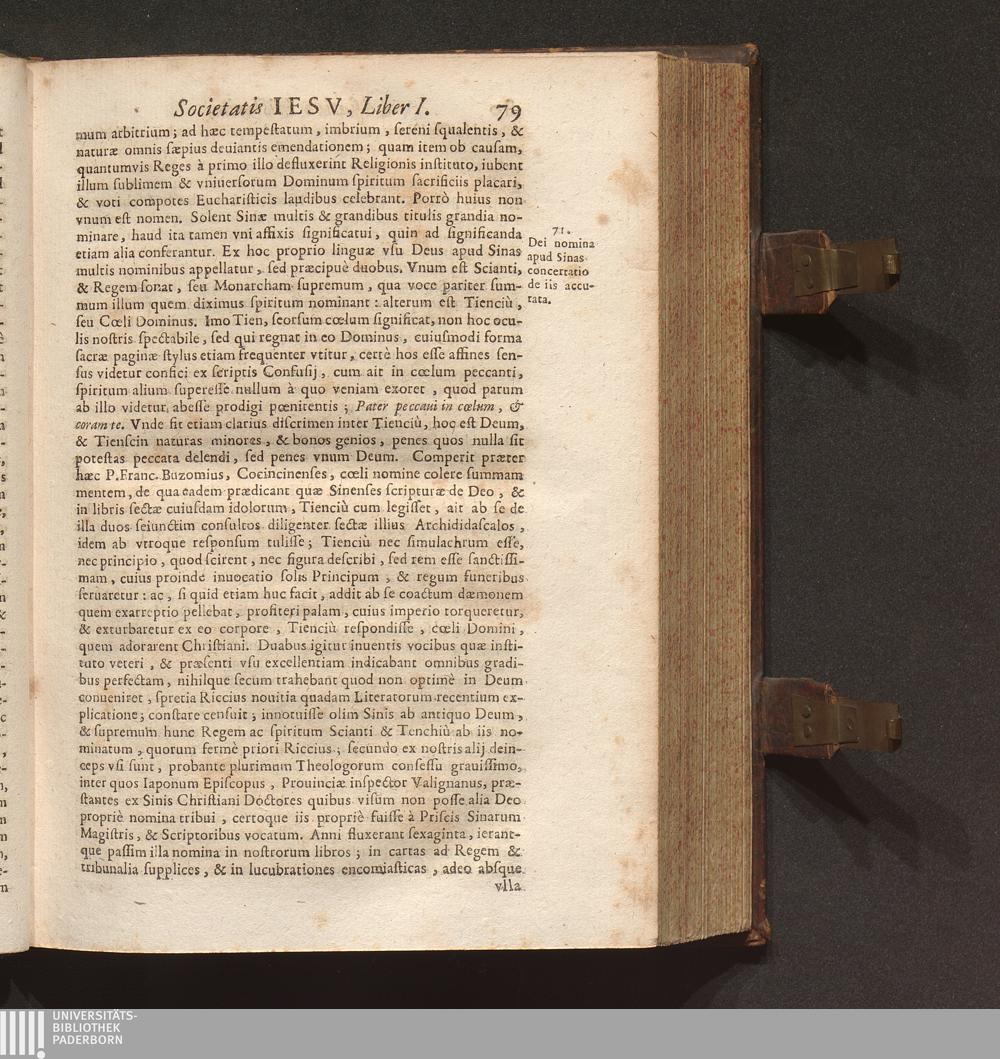 Societatis IESV, Liber I. 79
mum arbitrium; ad hæc tempestatum, imbrium, sereni squalentis, &
naturæ omnis sæpius deuiantis emendationem; quam item ob causam,
quantumvis Reges à primo illo defluxerint Religionis instituto, iubent
illum sublimem & vniuersorum Dominum spiritum sacrificiis placari,
& voti compotes Eucharisticis laudibus celebrant. Porrò huius non
vnum est nomen. Solent Sinæ multis & grandibus titulis grandia no-
minare, haud ita tamen vni affixis significatui, quin ad significanda
etiam alia conferantur. Ex hoc proprio linguæ vsu Deus apud Sinas
multis nominibus appellatur, sed præcipuè duobus. Vnum est Scianti,
& Regem sonat, seu Monarcham supremum, qua voce pariter sum-
mum illum quem diximus spiritum nominant: alterum est Tienciù,
seu Cœli Dominus. Imo Tien, seorsum cœlum significat, non hoc ocu-
lis nostris spectabile, sed qui regnat in eo Dominus, cuiusmodi forma
sacræ paginæ stylus etiam frequenter vtitur, certè hos esse affines sen-
sus videtur confici ex scriptis Confusij, cum ait in cœlum peccanti,
spiritum alium superesse nullum à quo veniam exoret, quod parum
ab illo videtur abesse prodigi pœnitentis; Pater peccaui in cœlum, &
coram te. Vnde fit etiam clarius discrimen inter Tienciù, hoc est Deum,
& Tienscin naturas minores, & bonos genios, penes quos nulla sit
potestas peccata delendi, sed penes vnum Deum. Comperit præter
hæc P. Franc. Buzomius, Cocincinenses, cœli nomine colere summam
mentem, de qua eadem prædicant quæ Sinenses scripturæ de Deo, &
in libris sectæ cuiusdam idolorum, Tienciù cum legisset, ait ab se de
illa duos seiunctim consultos diligenter sectæ illius Archididascalos,
idem ab vtroque responsum tulisse; Tienciù nec simulachrum esse,
nec principio, quod scirent, nec figura describi, sed rem esse sanctissi-
mam, cuius proinde inuocatio solis Principum, & regum funeribus
seruaretur: ac, si quid etiam huc facit, addit ab se coactum dæmonem
quem exarreptio pellebat, profiteri palam, cuius imperio torqueretur,
& exturbaretur ex eo corpore, Tienciù respondisse, cœli Domini,
quem adorarent Christiani. Duabus igitur inuentis vocibus quæ insti-
tuto veteri, & præsenti vsu excellentiam indicabant omnibus gradi-
bus perfectam, nihilque secum trahebant quod non optimè in Deum
conueniret, spretia Riccius nouitia quadam Literatorum recentium ex-
plicatione; constare censuit; innotuisse olim Sinis ab antiquo Deum,
& supremum hunc Regem ac spiritum Scianti & Tenchiù ab iis no-
minatum, quorum fermè priori Riccius; secundo ex nostris alij dein-
ceps vsi sunt, probante plurimum Theologorum consessu grauissimo,
inter quos Iaponum Episcopus, Prouinciæ inspector Valignanus, præ-
stantes ex Sinis Christiani Doctores quibus visum non posse alia Deo
propriè nomina tribui, certoque iis propriè fuisse à Priscis Sinarum
Magistris, & Scriptoribus vocatum. Anni fluxerant sexaginta, ierant-
que passim illa nomina in nostrorum libros; in cartas ad Regem &
tribunalia supplices, & in lucubrationes encomiasticas, adeo absque
vlla
71.
Dei nomina
apud Sinas
concertatio
de iis accu-
rata.
UNIVERSITÄTS-
BIBLIOTHEK
PADERBORN